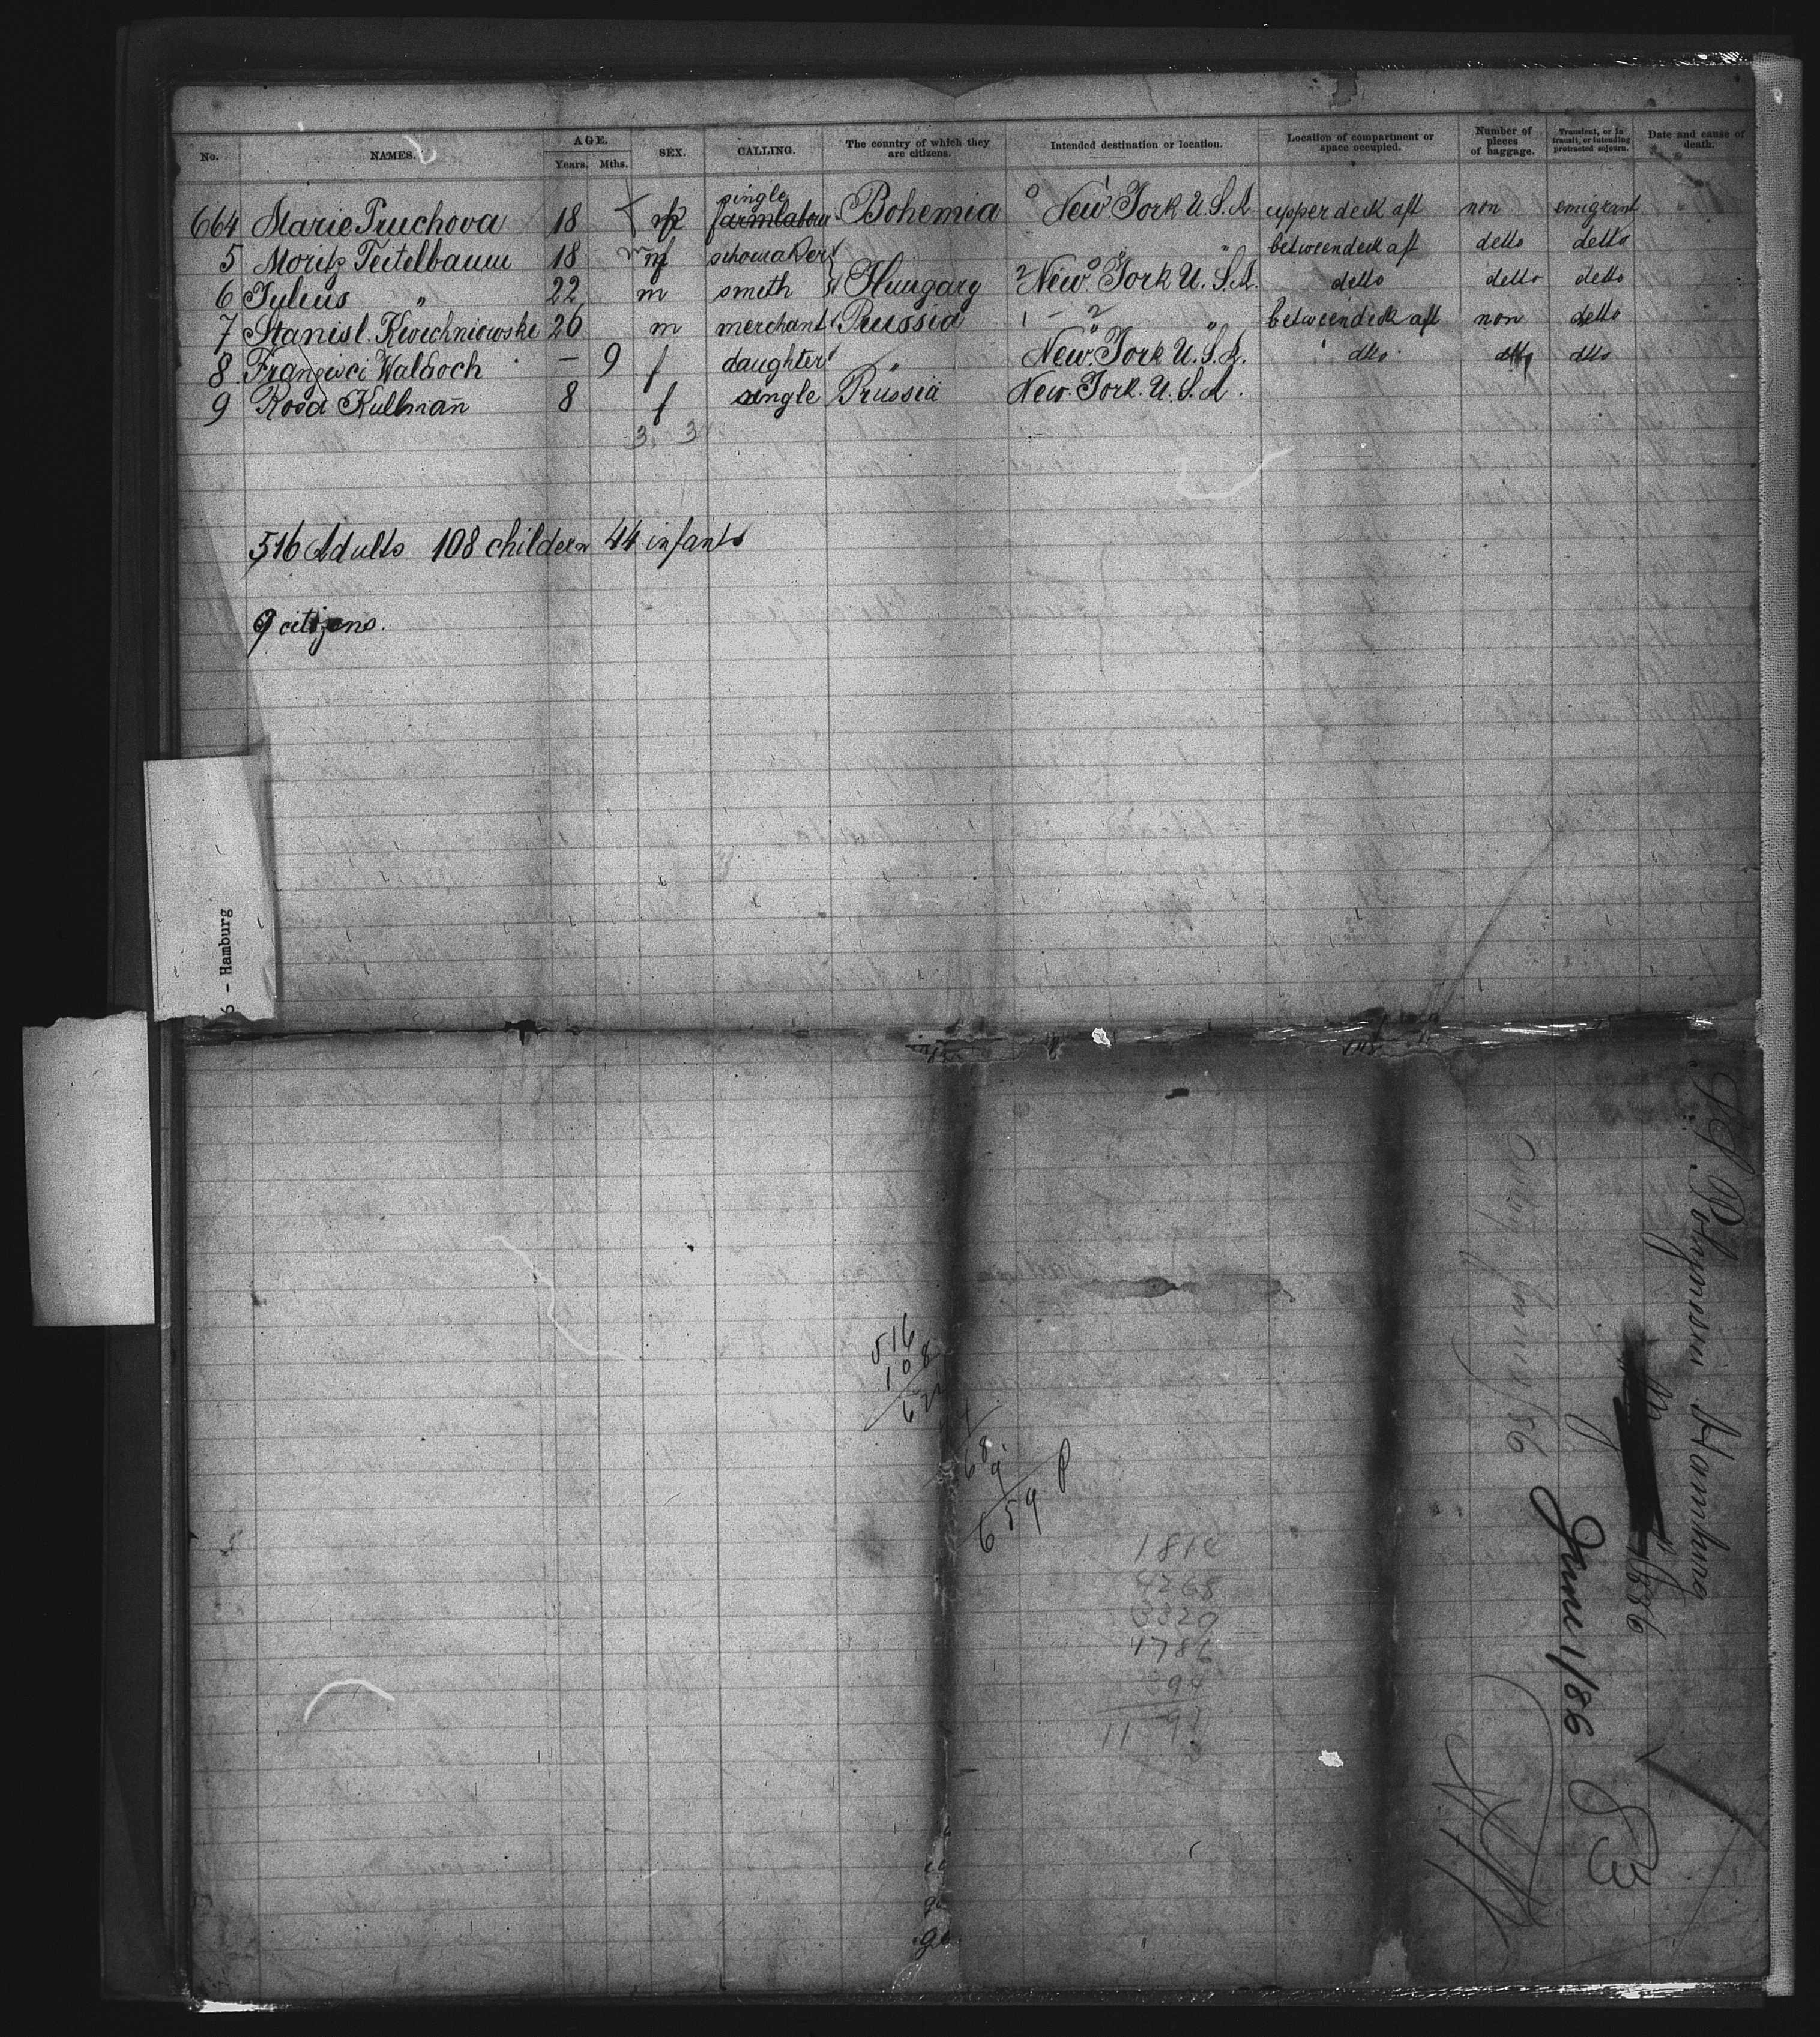 No. NAMES. AGE. Years. Mths. SEX. CALLING. The country of which they are citizens. Intended destination or location. Location of compartment or space occupied. Number of pieces of baggage. Transient, or in transit, or intending protracted sojourn. Date and cause of death.
single
664 Marie Pruchova 18 farmlabour Bohemia New York U.S.A. upper deck aft non emigrant
5 Moritz Teitelbaum 18 m schomaker " betweendeck aft detto detto
6 Julius " 22 m smith Hungary 2 New York U.S.A. detto detto detto
7 Stanisl. Kwichniowski 26 m merchant Prussia 1 - 2 " betweendeck aft non detto
8 Waldoch - 9 f daughter " New York U.S.A. dtto dtto dtto
9 Rosa Kullman̄ 8 f single Prussia New York U.S.A.
3. 3
516 Adults 108 childern 44 infants
9 citizens.
6 - Hamburg
516
108
624
44
668
9
659
1814
4268
3320
1786
394
SS Polynesia Hamburg
1886
June 1/86
83